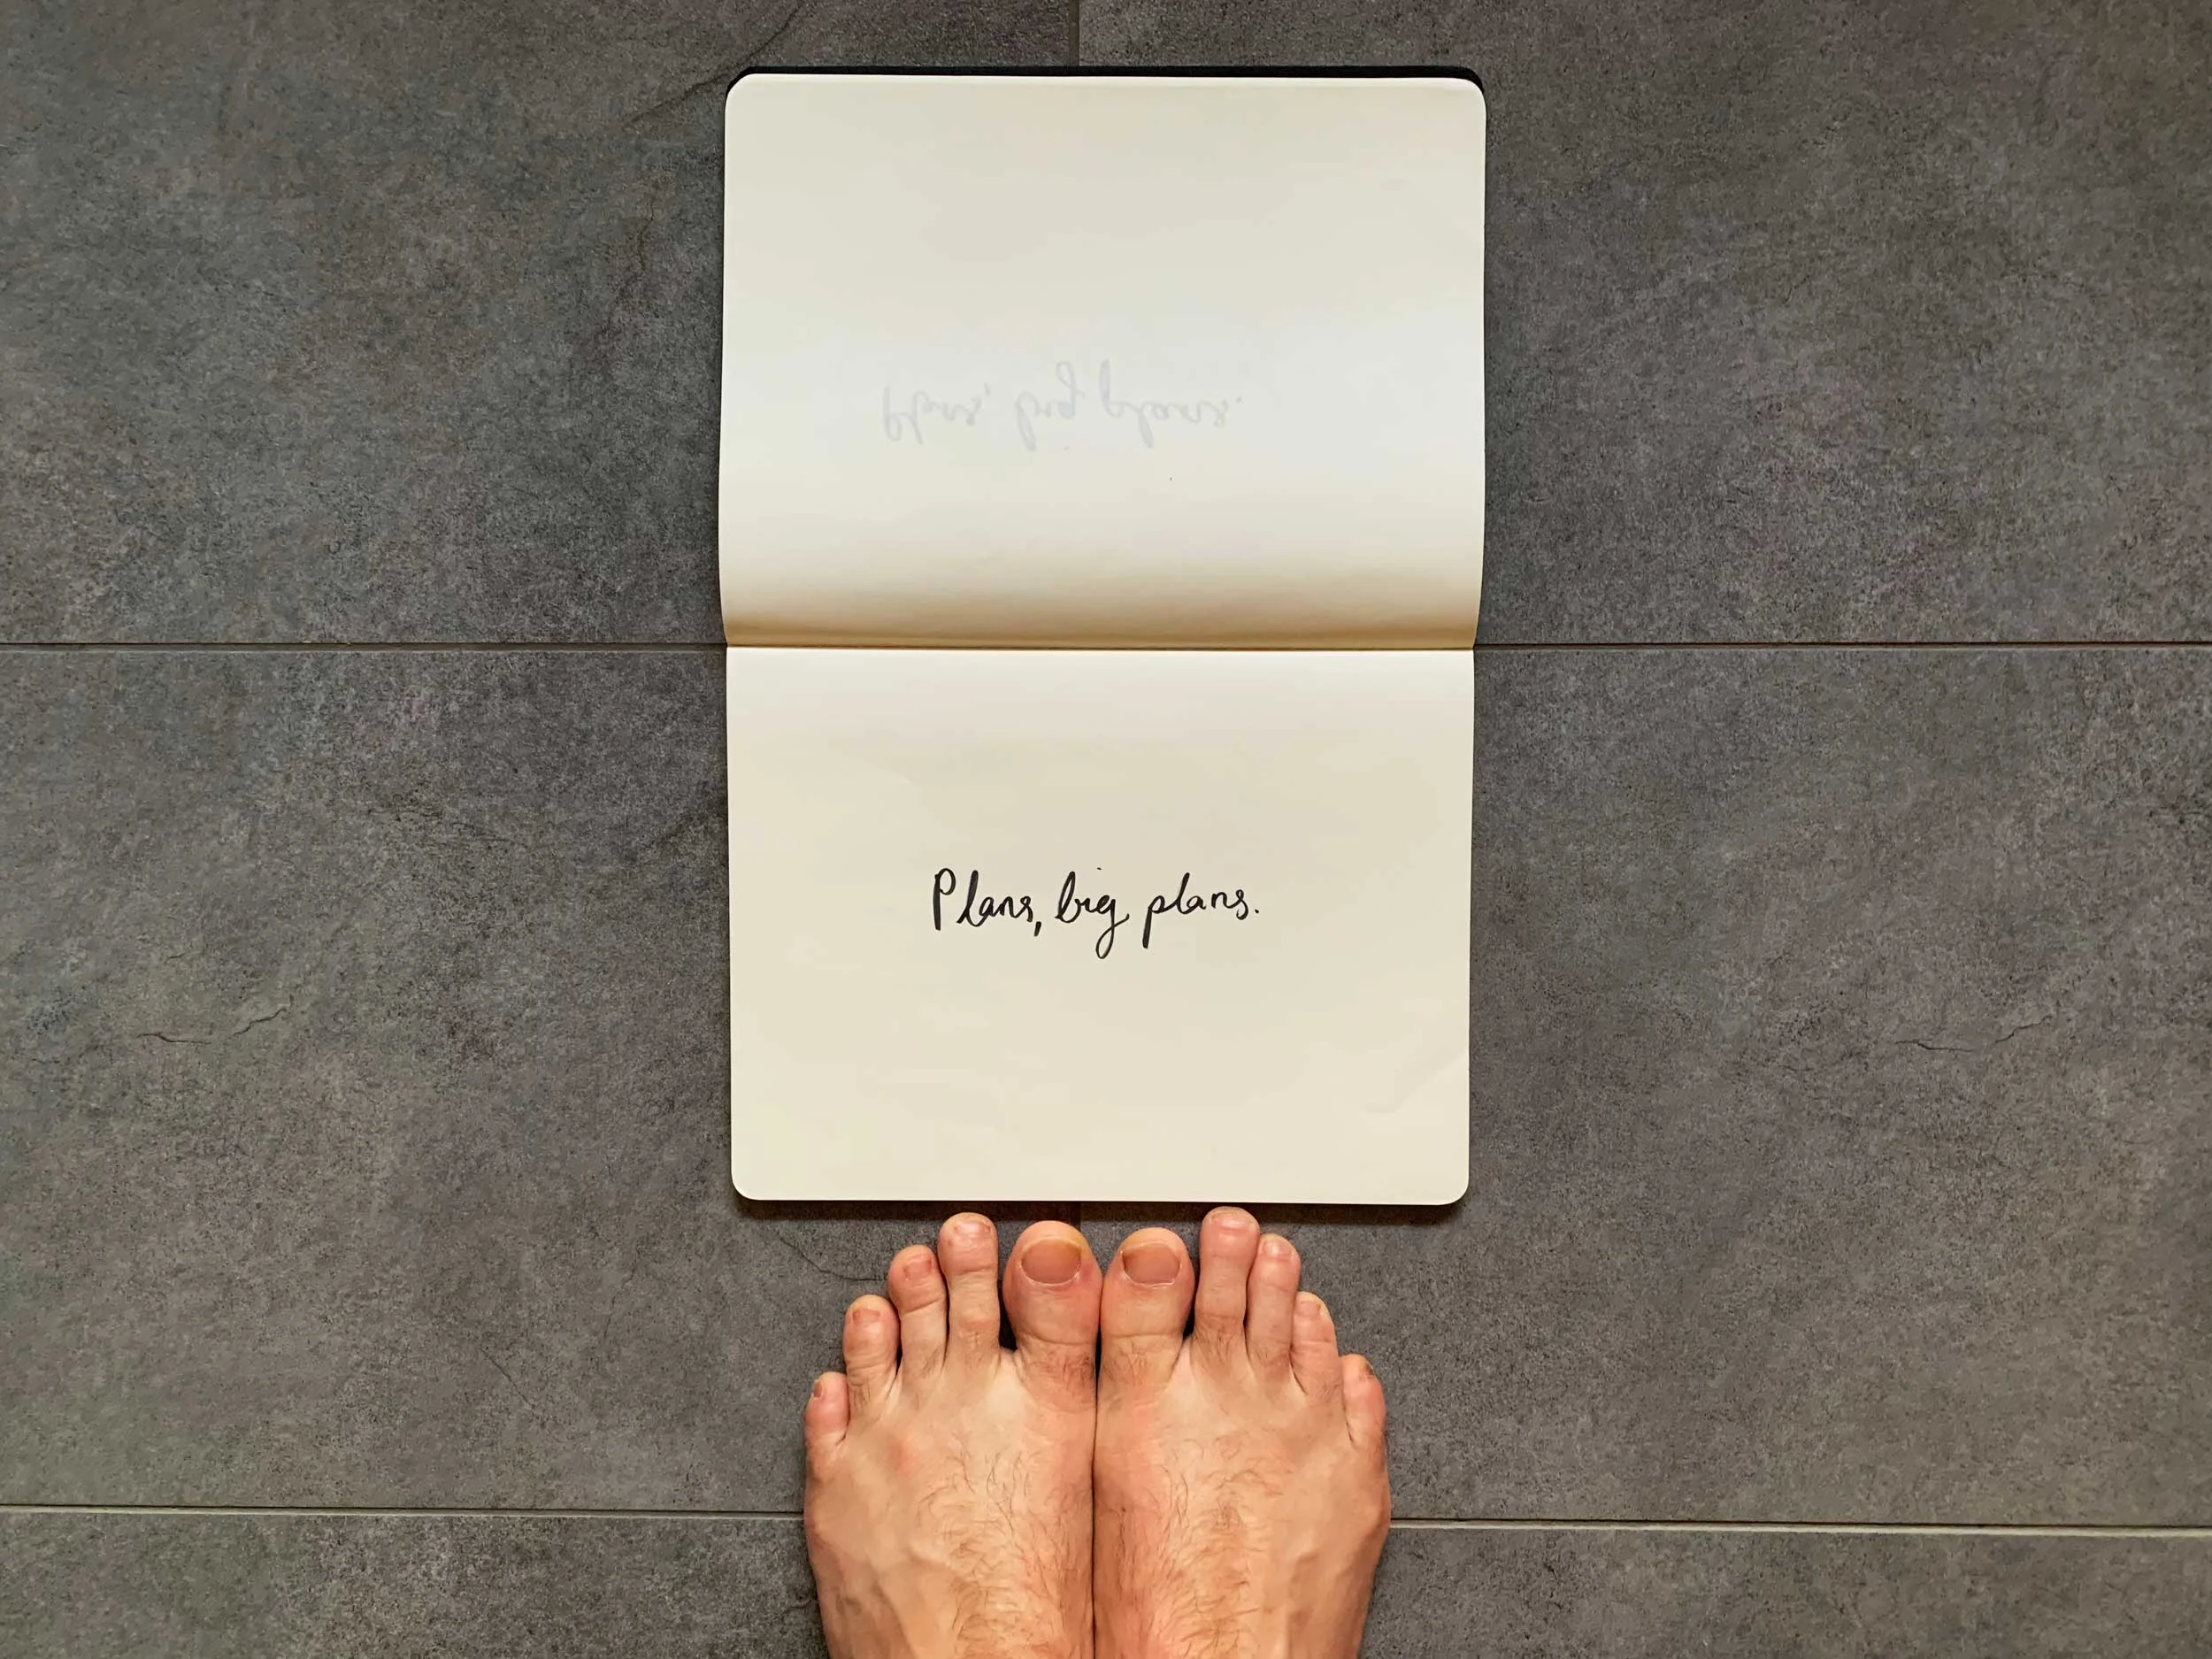 Plans, big plans.